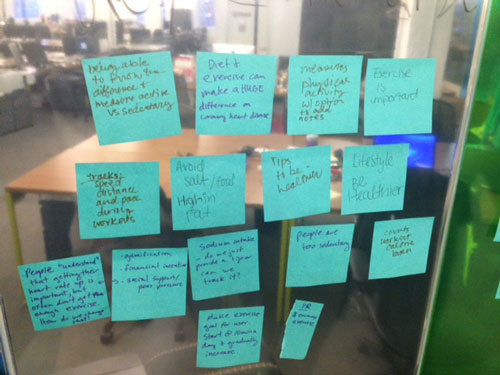 being able
to
difference &
measure active
vs sedentary
Diet &
exercise can
make a HUGE
difference on
coronary heart disease
measures
physical
activity
w/ option
to add
notes
Exercise
is
important
tracks
speed
distance
and pace
during
workouts
Avoid
salt/Food
High in
fat
Tips
to be
healthier
Lifestyle
Be
Healthier
People "understand"
that getting their
heart rate up is
important, but
often don't get
enough exercise.
How do we change
that?
gamification
- financial incentive
- social support/
peer pressure
Sodium intake
- do we just
provide a tip or
can we
track it?
People are
too sedentary
counts
workout
calorie
burn
Make exercise
goal for user.
Start @
day & gradually
increase
exercise